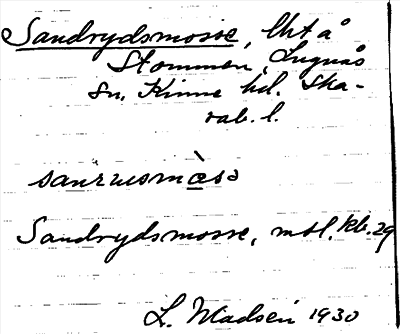 Sandrydsmosse, lht å
Stommen, Lugnås
sn, Kinne hd. Ska-
rab. l.
sanrusmò̲sə
Sandrydsmosse, mtl. kb. 29
L. Madsen 1930